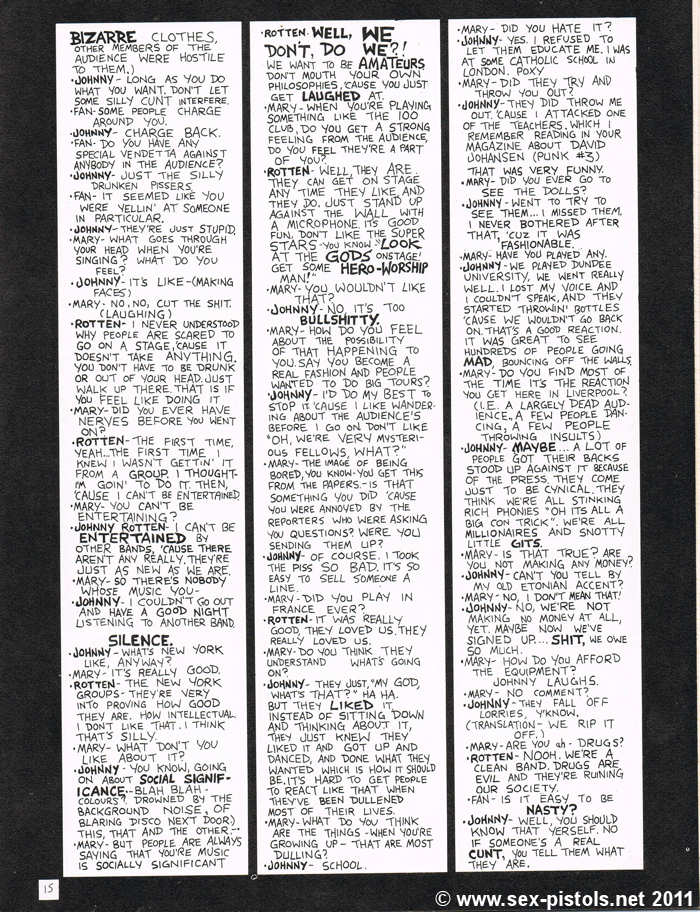 BIZARRE CLOTHES,
OTHER MEMBERS OF THE
AUDIENCE WERE HOSTILE
TO THEM.)
•JOHNNY- LONG AS YOU DO
WHAT YOU WANT. DON'T LET
SOME SILLY CUNT INTERFERE.
•FAN- SOME PEOPLE CHARGE
AROUND YOU.
JOHNNY- CHARGE BACK.
•FAN- DO YOU HAVE ANY
SPECIAL VENDETTA AGAINST
ANYBODY IN THE AUDIENCE?
•JOHNNY- JUST THE SILLY
DRUNKEN PISSERS.
•FAN- IT SEEMED LIKE YOU
WERE YELLIN' AT SOMEONE
IN PARTICULAR.
•JOHNNY- THEY'RE JUST STUPID.
•MARY- WHAT GOES THROUGH
YOUR HEAD WHEN YOU'RE
SINGING? WHAT DO YOU
FEEL?
•JOHNNY- IT'S LIKE-(MAKING
FACES)
•MARY- NO, NO, CUT THE SHIT.
(LAUGHING)
•ROTTEN- I NEVER UNDERSTOOD
WHY PEOPLE ARE SCARED TO
GO ON A STAGE, 'CAUSE IT
DOESN'T TAKE ANYTHING.
YOU DON'T HAVE TO BE DRUNK
OR OUT OF YOUR HEAD. JUST
WALK UP THERE. THAT IS IF
YOU FEEL LIKE DOING IT
•MARY- DID YOU EVER HAVE
NERVES BEFORE YOU WENT
ON?
•ROTTEN- THE FIRST TIME,
YEAH... THE FIRST TIME I
KNEW I WASN'T GETTIN' IT
FROM A GROUP. I THOUGHT-
I'M GOIN' TO DO IT. THEN,
'CAUSE I CAN'T BE ENTERTAINED
•MARY- YOU CAN'T BE
ENTERTAINING?
•JOHNNY ROTTEN- I CAN'T BE
ENTERTAINED BY
OTHER BANDS, 'CAUSE THERE
AREN'T ANY REALLY. THEY'RE
JUST AS NEW AS WE ARE.
•MARY- SO THERE'S NOBODY
WHOSE MUSIC YOU-
•JOHNNY- I COULDN'T GO OUT
AND HAVE A GOOD NIGHT
LISTENING TO ANOTHER BAND.
SILENCE.
•JOHNNY- WHAT'S NEW YORK
LIKE, ANYWAY?
•MARY- IT'S REALLY GOOD.
ROTTEN- THE NEW YORK
GROUPS- THEY'RE VERY
INTO PROVING HOW GOOD
THEY ARE. HOW INTELLECTUAL.
I DON'T LIKE THAT. I THINK
THAT'S SILLY.
•MARY- WHAT DON'T YOU
LIKE ABOUT IT?
•JOHNNY- YOU KNOW, GOING
ON ABOUT SOCIAL SIGNIF-
ICANCE-- BLAH BLAH-
COLOURS?. DROWNED BY THE
BACKGROUND NOISE, OF
BLARING DISCO NEXT DOOR)
THIS, THAT AND THE OTHER.--
•MARY- BUT PEOPLE ARE ALWAYS
SAYING THAT YOU'RE MUSIC
IS SOCIALLY SIGNIFICANT
•ROTTEN- WELL, WE
DON'T, DO WE?!
WE WANT TO BE AMATEURS
DON'T MOUTH YOUR OWN
PHILOSOPHIES, 'CAUSE YOU JUST
GET LAUGHED AT.
•MARY- WHEN YOU'RE PLAYING,
SOMETHING LIKE THE 100
CLUB, DO YOU GET A STRONG
FEELING FROM THE AUDIENCE,
DO YOU FEEL THEY'RE A PART
OF YOU?
•ROTTEN- WELL, THEY ARE.
THEY CAN GET ON STAGE
ANY TIME THEY LIKE, AND
THEY DO. JUST STAND UP
AGAINST THE WALL WITH
A MICROPHONE. ITS GOOD
FUN. DON'T LIKE THE SUPER
STARS- YOU KNOW "LOOK
AT THE GODS ONSTAGE!
GET SOME HERO-WORSHIP
MAN!"
•MARY- YOU WOULDN'T LIKE
THAT?
•JOHNNY- NO, IT'S TOO
BULLSHITTY.
•MARY- HOW DO YOU FEEL
ABOUT THE POSSIBILITY
OF THAT HAPPENING TO
YOU. SAY YOU BECOME A
REAL FASHION AND PEOPLE
WANTED TO DO BIG TOURS?
•JOHNNY- I'D DO MY BEST TO
STOP IT 'CAUSE I LIKE WANDER-
ING ABOUT THE AUDIENCE'S
BEFORE I GO ON. DON'T LIKE
"OH, WE'RE VERY MYSTERI-
OUS FELLOWS, WHAT?"
•MARY- THE IMAGE OF BEING
BORED, YOU KNOW- YOU GET THIS
FROM THE PAPERS.- IS THAT
SOMETHING YOU DID 'CAUSE
YOU WERE ANNOYED BY THE
REPORTERS WHO WERE ASKING
YOU QUESTIONS? WERE YOU
SENDING THEM UP?
•JOHNNY- OF COURSE. I TOOK
THE PISS SO BAD. IT'S SO
EASY TO SELL SOMEONE A
LINE.
•MARY- DID YOU PLAY IN
FRANCE EVER?
•ROTTEN- IT WAS REALLY
GOOD, THEY LOVED US. THEY
REALLY LOVED US.
•MARY- DO YOU THINK THEY
UNDERSTAND WHAT'S GOING
ON?
•JOHNNY- THEY JUST, "MY GOD,
WHAT'S THAT?" HA HA.
BUT THEY LIKED IT
INSTEAD OF SITTING DOWN
AND THINKING ABOUT IT,
THEY JUST KNEW THEY
LIKED IT AND GOT UP AND
DANCED, AND DONE WHAT THEY
WANTED WHICH IS HOW IT SHOULD
BE. IT'S HARD TO GET PEOPLE
TO REACT LIKE THAT WHEN
THEY'VE BEEN DULLENED
MOST OF THEIR LIVES.
•MARY- WHAT DO YOU THINK
ARE THE THINGS -WHEN YOU'RE
GROWING UP- THAT ARE MOST
DULLING?
•JOHNNY- SCHOOL.
•MARY- DID YOU HATE IT?
•JOHNNY- YES. I REFUSED TO
LET THEM EDUCATE ME. I WAS
AT SOME CATHOLIC SCHOOL IN
LONDON. POXY
•MARY- DID THEY TRY AND
THROW YOU OUT?
•JOHNNY- THEY DID THROW ME
OUT. 'CAUSE I ATTACKED ONE
OF THE TEACHERS. WHICH I
REMEMBER READING IN YOUR
MAGAZINE ABOUT DAVID
JOHANSEN (PUNK #3)
THAT WAS VERY FUNNY.
•MARY- DID YOU EVER GO TO
SEE THE DOLLS?
•JOHNNY- WENT TO TRY TO
SEE THEM... I MISSED THEM.
I NEVER BOTHERED AFTER
THAT, 'CUZ IT WAS
FASHIONABLE.
•MARY- HAVE YOU PLAYED ANY.
•JOHNNY- WE PLAYED DUNDEE
UNIVERSITY, WE WENT REALLY
WELL. I LOST MY VOICE AND
I COULDN'T SPEAK, AND THEY
STARTED THROWIN' BOTTLES
'CAUSE WE WOULDN'T GO BACK
ON. THAT'S A GOOD REACTION.
IT WAS GREAT TO SEE
HUNDREDS OF PEOPLE GOING
MAD BOUNCING OFF THE WALLS.
•MARY- DO YOU FIND MOST OF
THE TIME IT'S THE REACTION
YOU GET HERE IN LIVERPOOL?
(I.E. A LARGELY DEAD AUD-
IENCE., A FEW PEOPLE DAN-
CING, A FEW PEOPLE
THROWING INSULTS)
•JOHNNY- MAYBE... A LOT OF
PEOPLE GOT THEIR BACKS
STOOD UP AGAINST IT BECAUSE
OF THE PRESS. THEY COME
JUST TO BE CYNICAL. THEY
THINK WE'RE ALL STINKING
RICH PHONIES "OH ITS ALL A
BIG CON TRICK". WE'RE ALL
MILLIONAIRES AND SNOTTY
LITTLE GITS.
•MARY- IS THAT TRUE? ARE
YOU NOT MAKING ANY MONEY?
•JOHNNY- CAN'T YOU TELL BY
MY OLD ETONIAN ACCENT?
•MARY- NO, I DON'T MEAN THAT!
•JOHNNY- NO, WE'RE NOT
MAKING NO MONEY AT ALL,
YET. MAYBE NOW WE'VE
SIGNED UP.... SHIT, WE OWE
SO MUCH.
•MARY- HOW DO YOU AFFORD
THE EQUIPMENT?
JOHNNY LAUGHS.
•MARY- NO COMMENT?
•JOHNNY- THEY FALL OFF
LORRIES, Y'KNOW.
(TRANSLATION- WE RIP IT
OFF.)
•MARY- ARE YOU uh- DRUGS?
•ROTTEN- NOOH. WE'RE A
CLEAN BAND. DRUGS ARE
EVIL AND THEY'RE RUINING
OUR SOCIETY.
•FAN- IS IT EASY TO BE
NASTY?
•JOHNNY- WELL, YOU SHOULD
KNOW THAT YERSELF. NO
IF SOMEONE'S A REAL
CUNT, YOU TELL THEM WHAT
THEY ARE.
15
© www.sex-pistols.net 2011